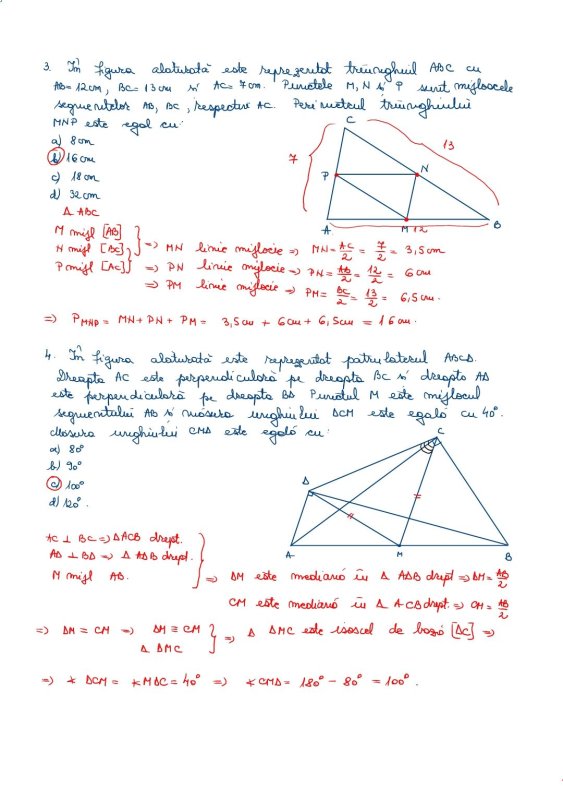 3. În figura alăturată este reprezentat triunghiul ABC cu
AB = 12cm, BC = 13cm și AC = 7cm. Punctele M, N și P sunt mijloacele
segmentelor AB, BC, respectiv AC. Perimetrul triunghiului
MNP este egal cu:
a) 8cm
b) 16cm
c) 18cm
d) 32cm
C
13
7
P
N
A
M
12
B
Δ ABC
M mijl [AB]
N mijl [BC]
P mijl [AC]
=> MN linie mijlocie => MN = AC/2 = 7/2 = 3,5cm
=> PN linie mijlocie => PN = AB/2 = 12/2 = 6cm
=> PM linie mijlocie => PM = BC/2 = 13/2 = 6,5cm.
=> P MNP = MN + PN + PM = 3,5cm + 6cm + 6,5cm = 16cm.
4. În figura alăturată este reprezentat patrulaterul ABCD.
Dreapta AC este perpendiculară pe dreapta BC și dreapta AD
este perpendiculară pe dreapta BD. Punctul M este mijlocul
segmentului AB și măsura unghiului DCM este egală cu 40°.
Măsura unghiului CMD este egală cu:
a) 80°
b) 90°
c) 100°
d) 120°.
C
D
A
M
B
AC ⊥ BC => ΔACB drept.
AD ⊥ BD => Δ ADB drept.
M mijl AB.
=> DM este mediană în Δ ADB drept => DM = AB/2
CM este mediană în Δ ACB drept => CM = AB/2
=> DM = CM => DM ≡ CM
Δ DMC
=> Δ DMC este isoscel de bază [DC] =>
=> ∢ DCM = ∢MDC = 40° => ∢CMD = 180° - 80° = 100°.